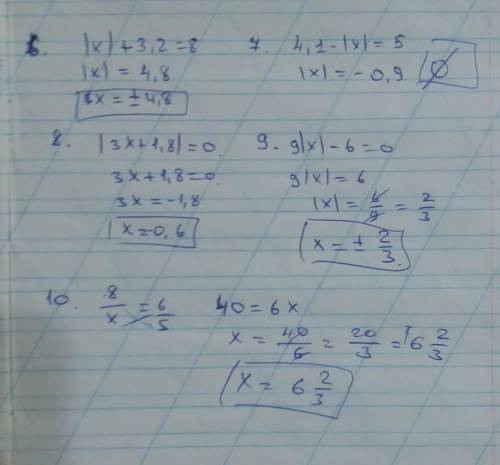 6. |x| + 3,2 = 8
|x| = 4,8
x = ± 4,8
7. 4,1 - |x| = 5
|x| = - 0,9 ∅
8. |3x+1,8| = 0
3x+1,8=0
3x = -1,8
x=0,6
9. 9|x| - 6 = 0
9|x| = 6
|x| = 6/9 = 2/3
x = ± 2/3
10. 8/x = 6/5
40 = 6x
x = 40/6 = 20/3 = 6 2/3
x = 6 2/3